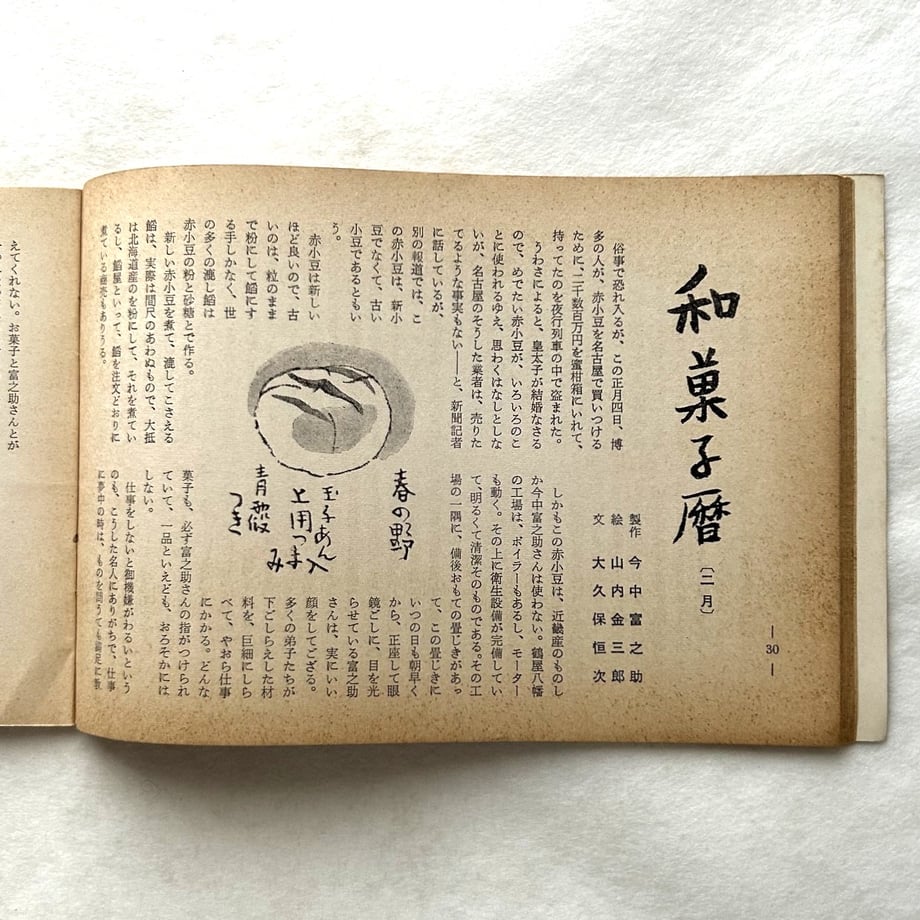 和菓子暦
〔二月〕
製作　今中富之助
絵　山内金三郎
文　大久保恒次
― 30 ―
俗事で恐れ入るが、この正月四日、博
多の人が、赤小豆を名古屋で買いつける
ために、二千数百万円を蜜柑箱にいれて、
持ってたのを夜行列車の中で盗まれた。
うわさによると、皇太子が結婚なさる
ので、めでたい赤小豆が、いろいろのこ
とに使われるゆえ、思わくはなしとしな
いが、名古屋のそうした業者は、売りた
てるような事実もない――と、新聞記者
に話しているが、
別の報道では、こ
の赤小豆は、新小
豆でなくて、古い
小豆であるともい
う。
赤小豆は新しい
ほど良いので、古
いのは、粒のまま
で粉にして餡にす
る手しかなく、世
の多くの漉し餡は
赤小豆の粉と砂糖とで作る。
新しい赤小豆を煮て、漉してこさえる
餡は、実際は間尺のあわぬもので、大抵
は北海道産のを粉にして、それを煮てい
るし、餡屋といって、餡を注文どおりに
煮ている商売もありうる。
しかもこの赤小豆は、近畿産のものし
か今中富之助さんは使わない。鶴屋八幡
の工場は、ボイラーもあるし、モーター
も動く。その上に衛生設備が完備してい
て、明るくて清潔そのものである。その工
場の一隅に、備後おもての畳じきがあっ
て、この畳じきに
いつの日も朝早く
から、正座して眼
鏡ごしに、目を光
らせている富之助
さんは、実にいい
顔をしてござる。
多くの弟子たちが
下ごしらえした材
料を、巨細にしら
べて、やおら仕事
にかかる。どんな
菓子も、必ず富之助さんの指がつけられ
ていて、一品といえども、おろそかには
しない。
仕事をしないと御機嫌がわるいという
のも、こうした名人にありがちで、仕事
に夢中の時は、ものを問うても満足に教
春の野
玉子あん入
上用つまみ
青
つき
えてくれない。お菓子と富之助さんとが